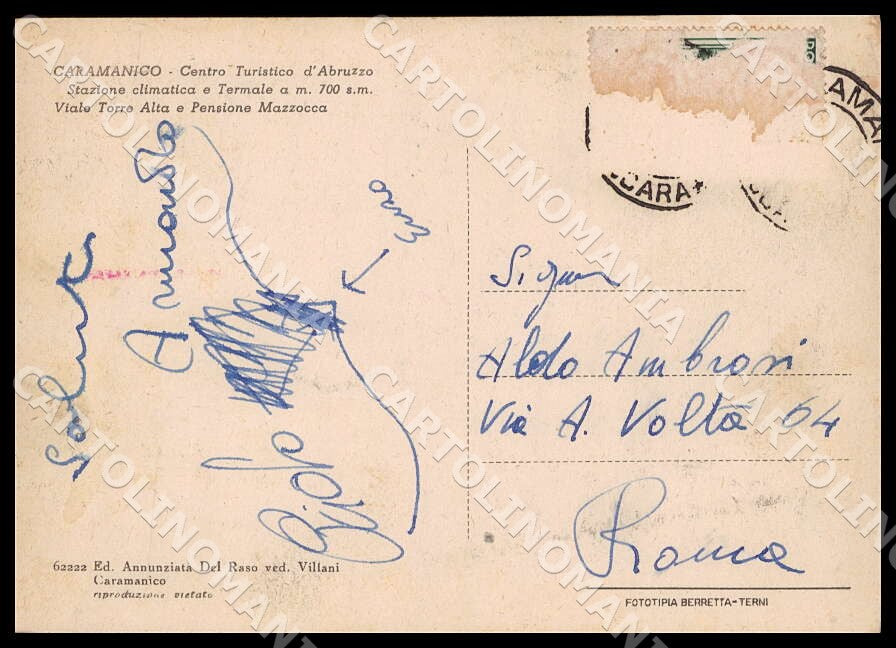 CARAMANICO - Centro Turistico d'Abruzzo
Stazione climatica e Termale a m. 700 s.m.
Viale Torre Alta e Pensione Mazzocca
Saluti
Armando
Enzo
Signor
Aldo Ambrosi
Via A. Volta 64
Roma
62222 Ed. Annunziata Del Raso ved. Villani
Caramanico
riproduzione vietata
FOTOTIPIA BERRETTA-TERNI
CARTOLINOMANIA